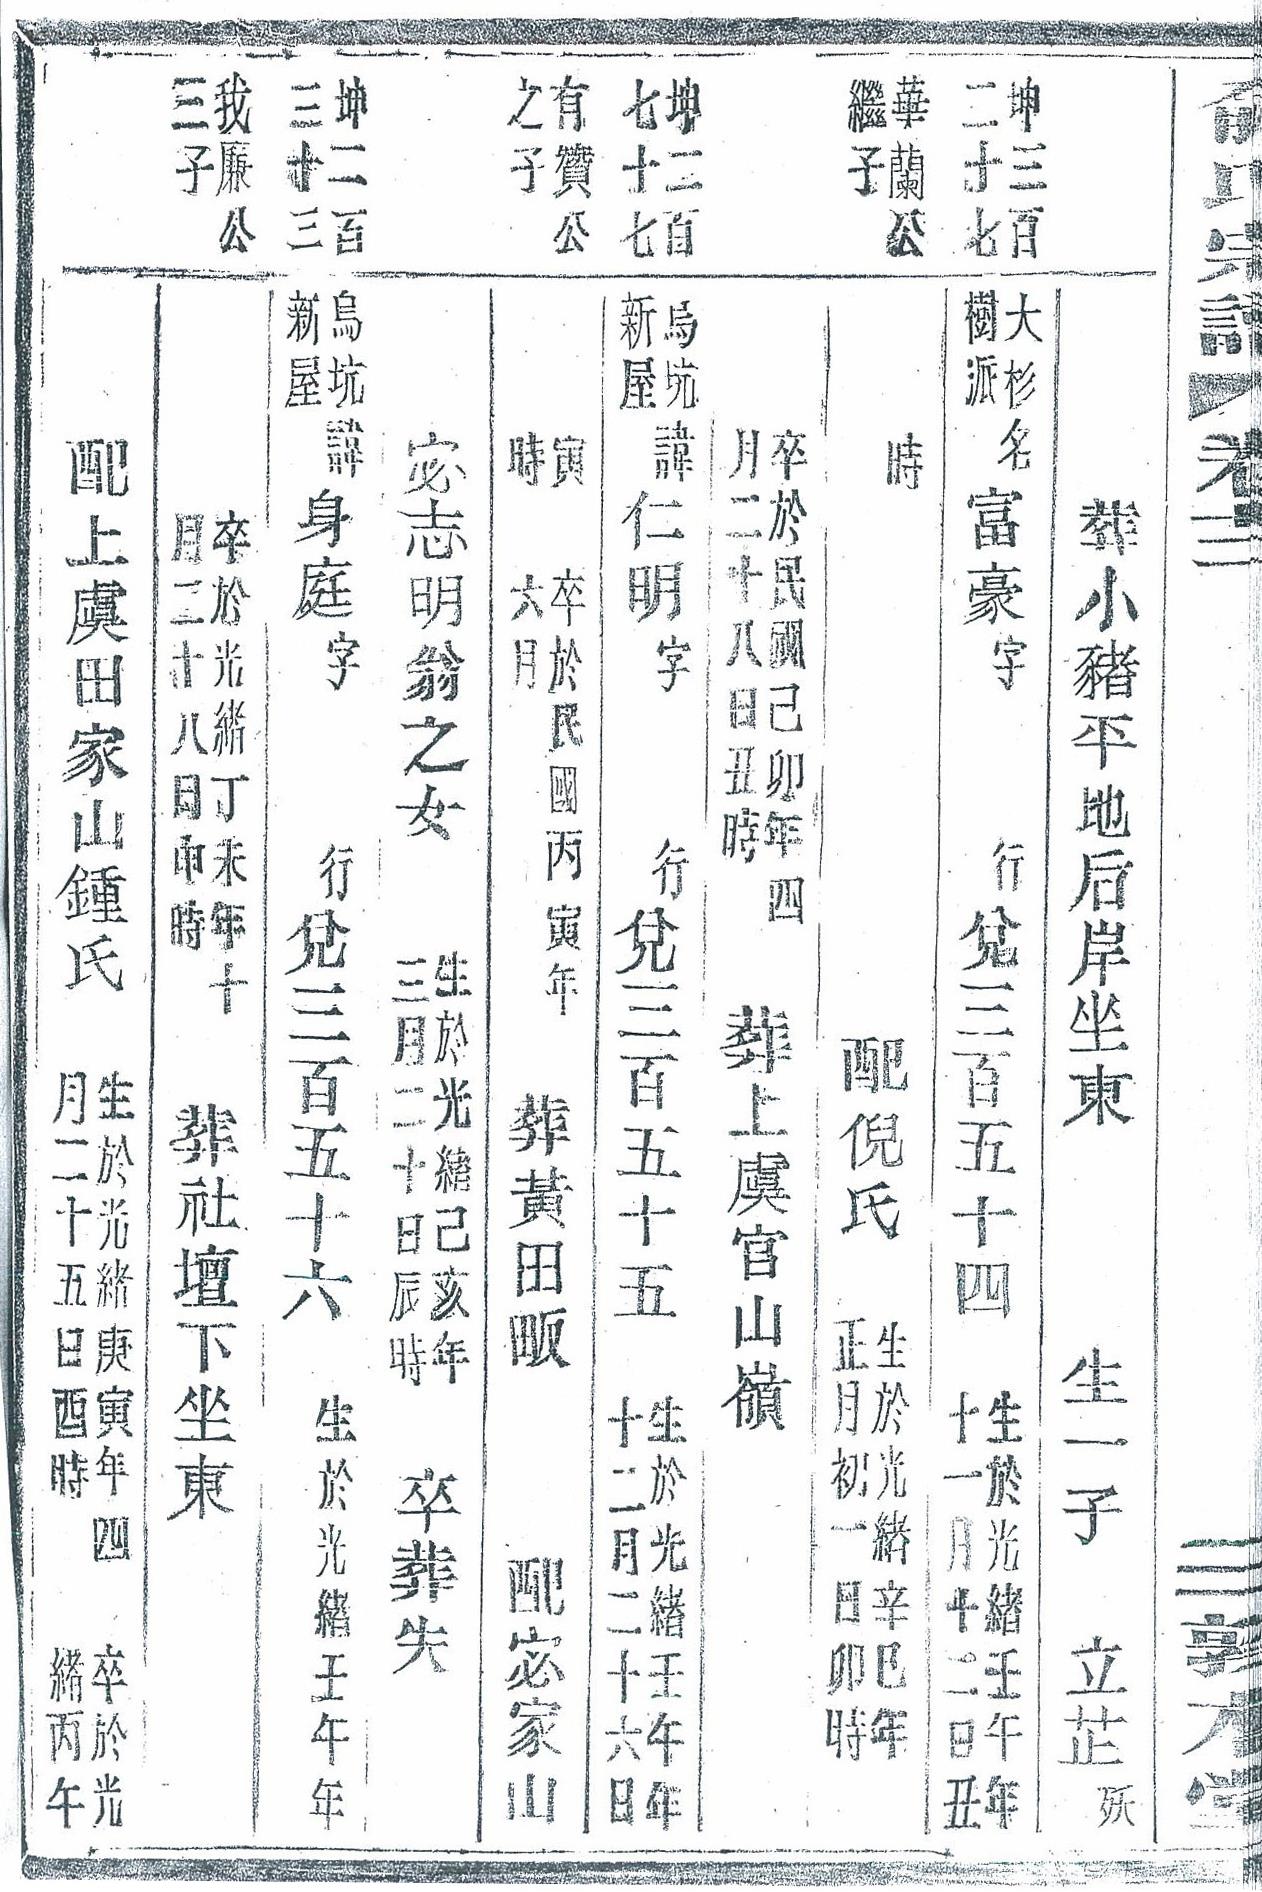 俞氏宗譜 卷十二 三 敦本堂
葬小豬平地后岸坐東 生一子 立芷 殀
坤三百
二十七
大杉
樹派
名富豪字 行兌三百五十四
生於光緒壬午年
十一月十二日丑
華蘭公
繼子
時 配倪氏
生於光緒辛巳年
正月初一日卯時
卒於民國己卯年四
月二十八日丑時
葬上虞官山嶺
坤二百
七十七
烏坑
新屋
諱仁明字 行兌三百五十五
生於光緒壬午年
十二月二十六日
有贊公
之子
寅
時
卒於民國丙寅年
六月
葬黃田畈 配宓家山
宓志明翁之女
生於光緒己亥年
三月二十日辰時
卒葬失
坤二百
三十三
烏坑
新屋
諱身庭字 行兌三百五十六 生於光緒壬午年
我廉公
三子
卒於光緒丁未年十
月二十八日申時
葬社壇下坐東
配上虞田家山鍾氏
生於光緒庚寅年四
月二十五日酉時
卒於光
緒丙午